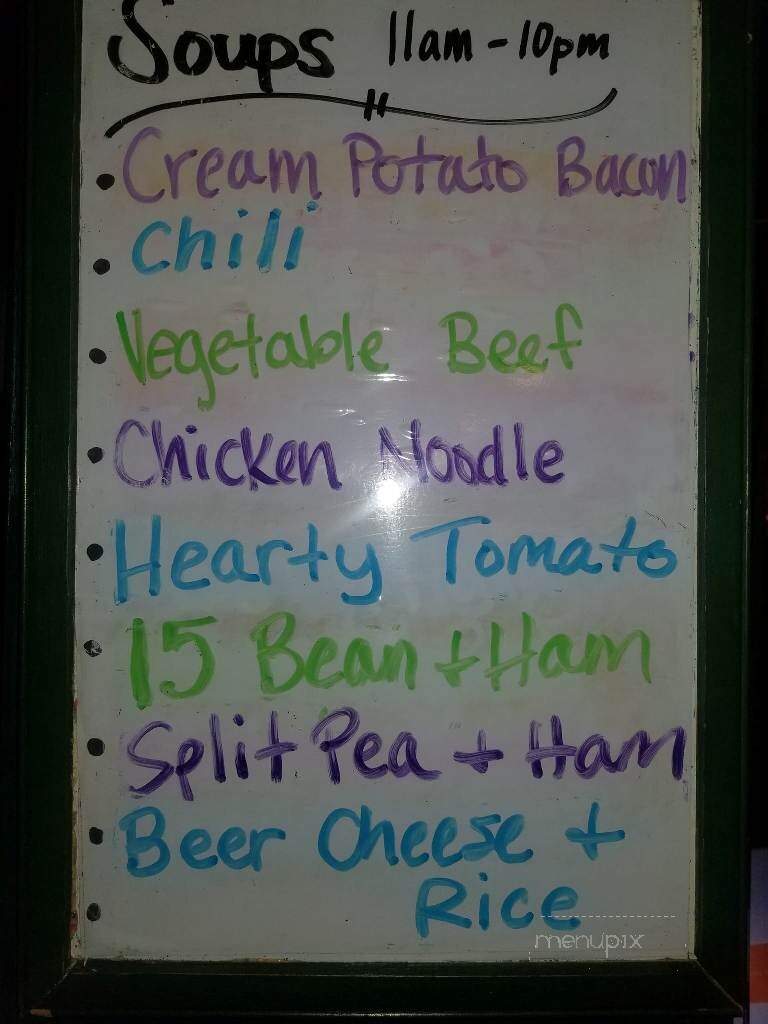 Soups 11am - 10pm
• Cream Potato Bacon
• Chili
• Vegetable Beef
• Chicken Noodle
• Hearty Tomato
• 15 Bean + Ham
• Split Pea + Ham
• Beer Cheese +
• Rice
menupix